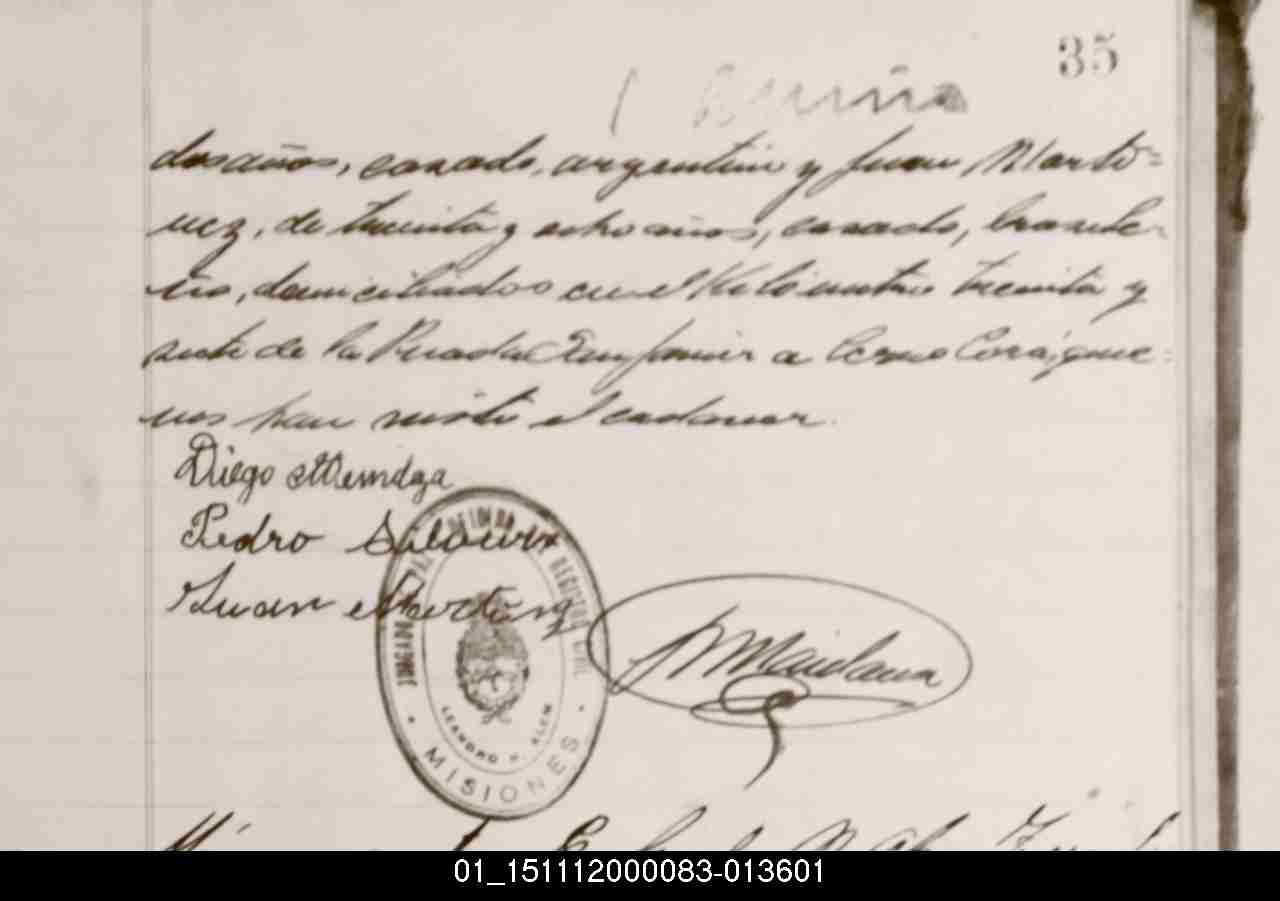 35
dos años, casado, argentino y Juan Martí=
nez, de treinta y ocho años, casado, brasile-
ño, domiciliados en el Kilómetro treinta y
siete de la Picada San Javier a Cerro Corá, quie=
nes han visto el cadaver.
Diego Mendoza
Pedro
Juan Martinez
Maidana
JUZGADO DE PAZ REGISTRO CIVIL
LEANDRO N. ALEM
MISIONES
01_151112000083-013601